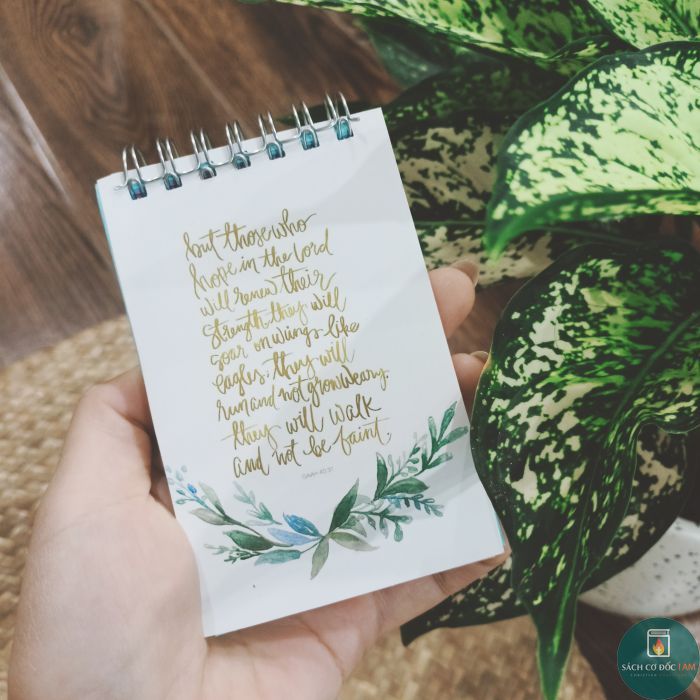 but those who
hope in the Lord
will renew their
strength. they will
soar on wings like
eagles; they will
run and not grow weary.
they will walk
and not be faint.
ISAIAH 40:31
SÁCH CƠ ĐỐC I AM